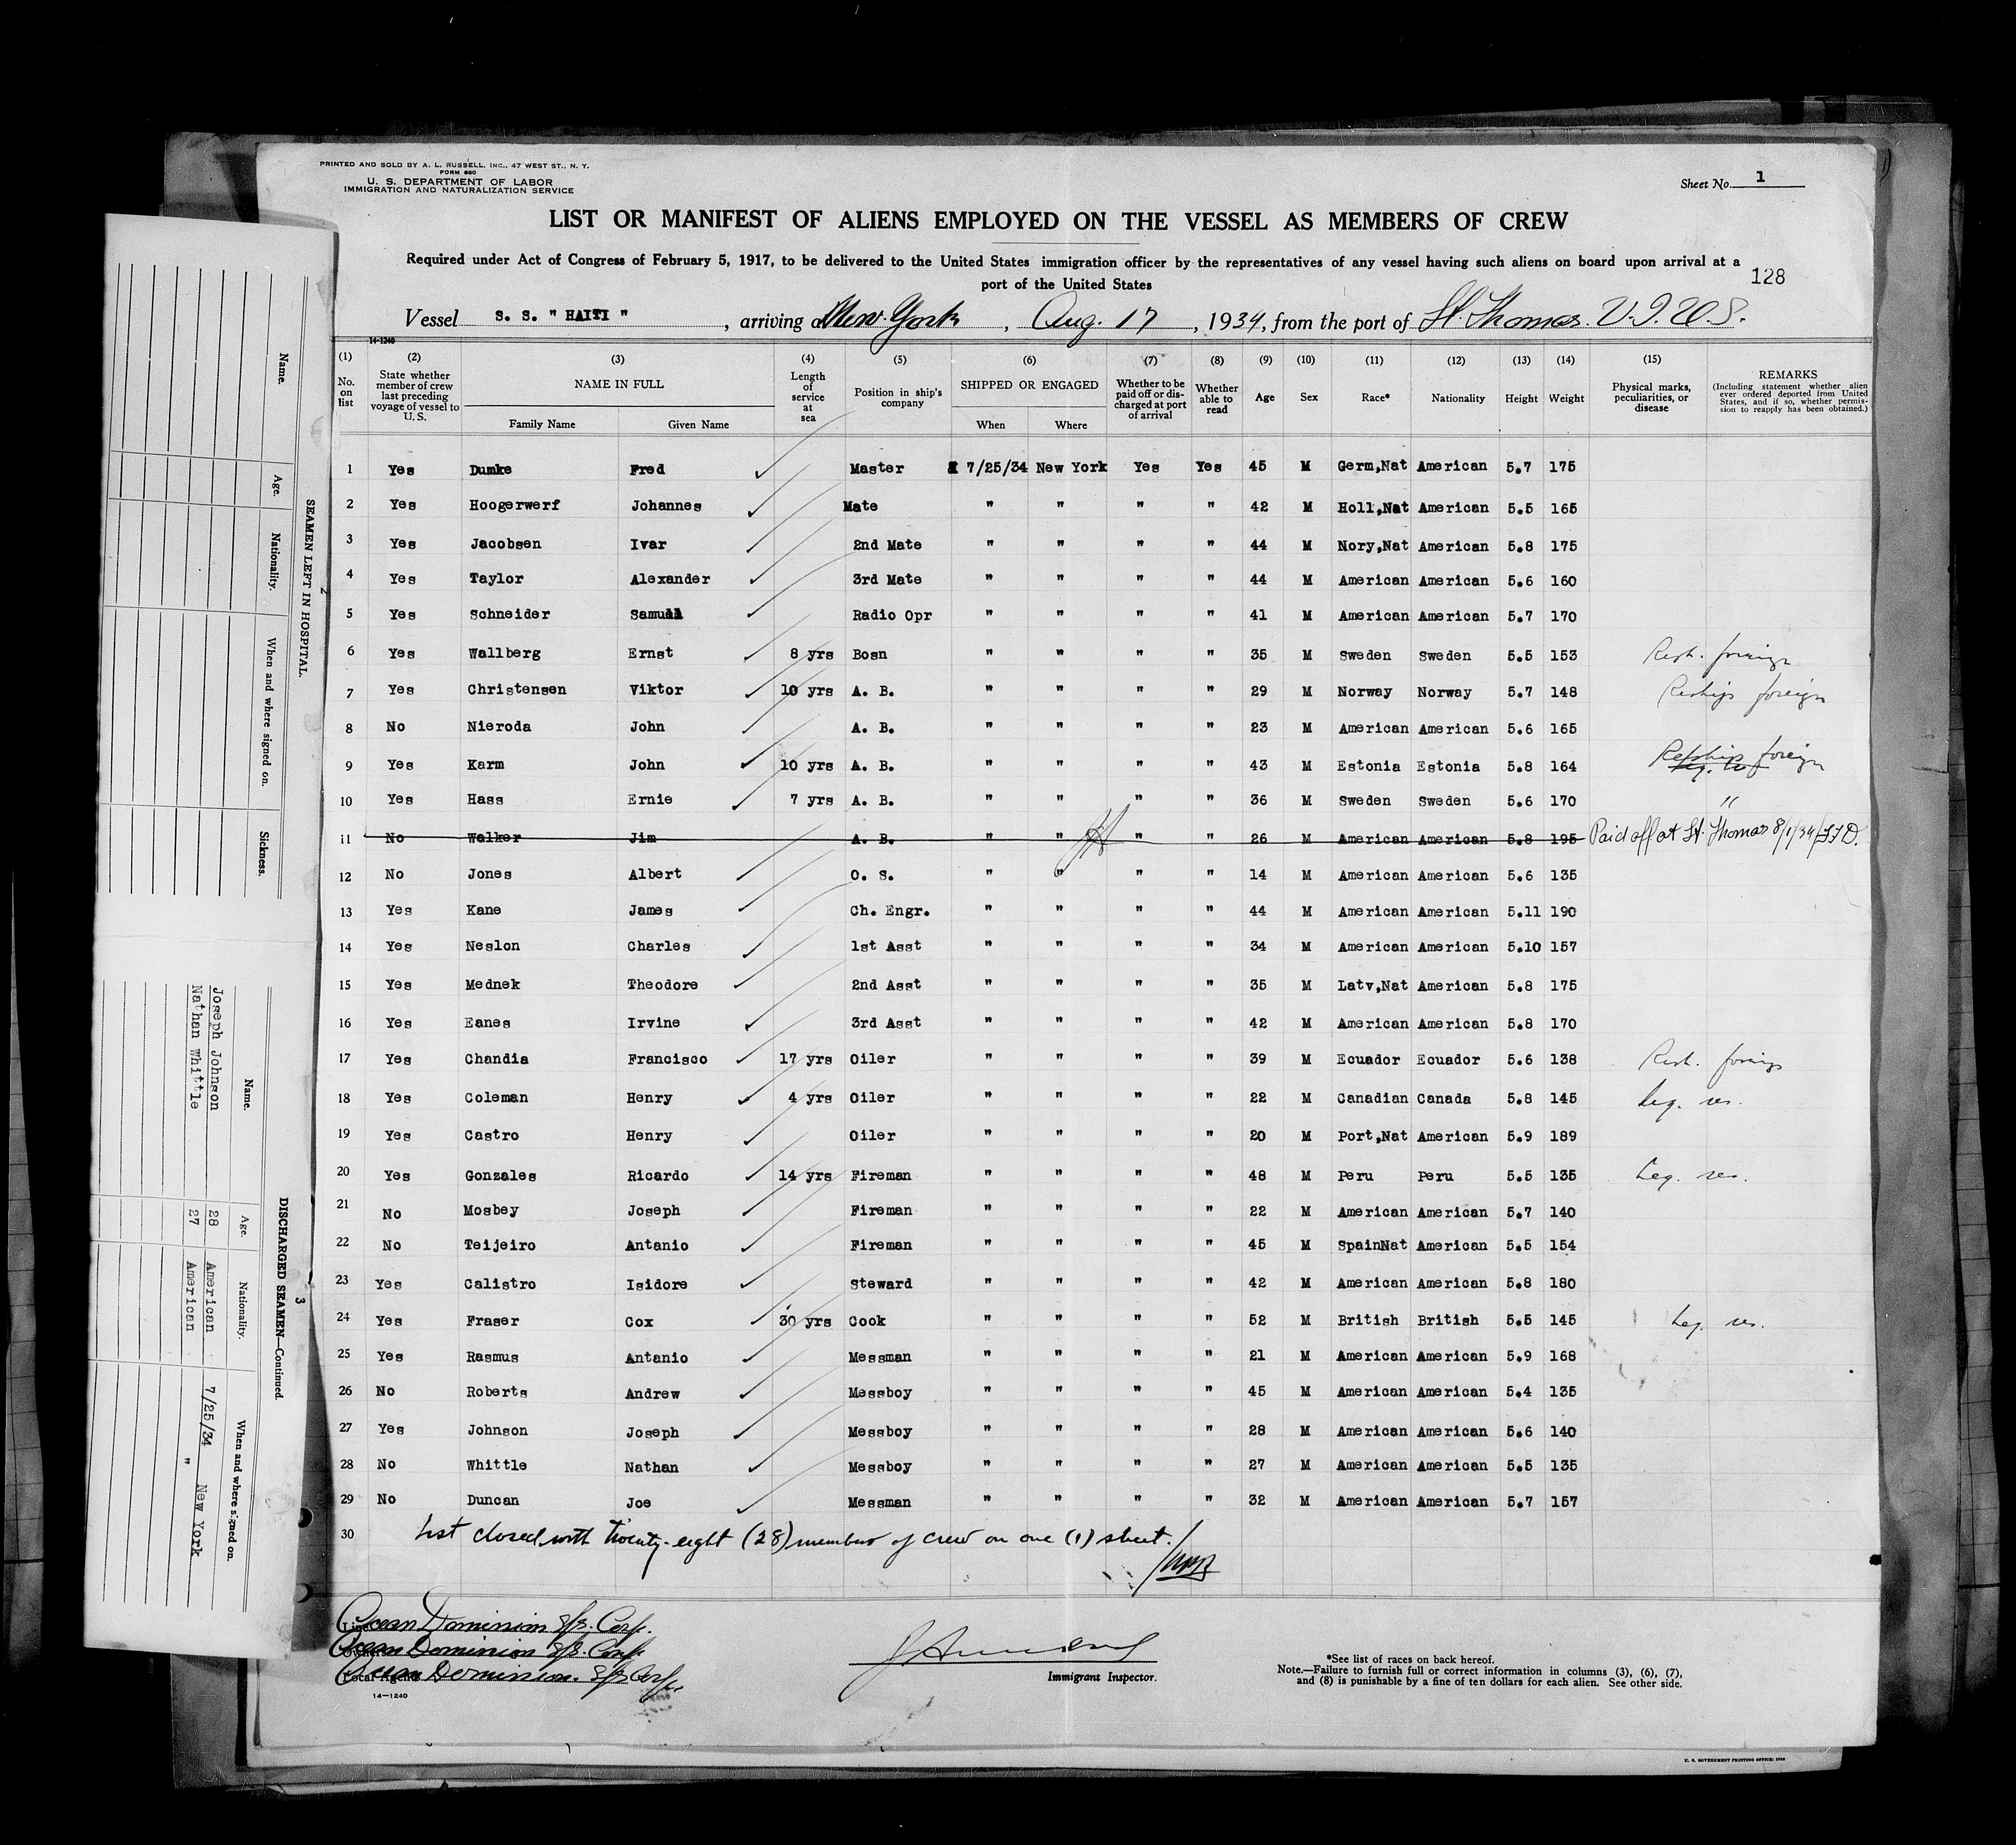 PRINTED AND SOLD BY A. L. RUSSELL, INC., 47 WEST ST., N. Y.
FORM 680
U. S. DEPARTMENT OF LABOR
IMMIGRATION AND NATURALIZATION SERVICE
Sheet No. 1
LIST OR MANIFEST OF ALIENS EMPLOYED ON THE VESSEL AS MEMBERS OF CREW
Required under Act of Congress of February 5, 1917, to be delivered to the United States immigration officer by the representatives of any vessel having such aliens on board upon arrival at a
port of the United States
128
Vessel S. S. " HAITI " , arriving at New York , Aug. 17 , 1934, from the port of St. Thomas. V.I.U.S.
14-1240
(1) No. on list (2) State whether member of crew last preceding voyage of vessel to U. S. (3) NAME IN FULL Family Name Given Name (4) Length of service at sea (5) Position in ship's company (6) SHIPPED OR ENGAGED When Where (7) Whether to be paid off or discharged at port of arrival (8) Whether able to read (9) Age (10) Sex (11) Race* (12) Nationality (13) Height (14) Weight (15) Physical marks, peculiarities, or disease REMARKS (Including statement whether alien ever ordered deported from United States, and if so, whether permission to reapply has been obtained.)
1 Yes Dumke Fred Master 7/25/34 New York Yes Yes 45 M Germ,Nat American 5.7 175
2 Yes Hoogerwerf Johannes Mate " " " " 42 M Holl,Nat American 5.5 165
3 Yes Jacobsen Ivar 2nd Mate " " " " 44 M Nory,Nat American 5.8 175
4 Yes Taylor Alexander 3rd Mate " " " " 44 M American American 5.6 160
5 Yes Schneider Samuel Radio Opr " " " " 41 M American American 5.7 170
6 Yes Wallberg Ernst 8 yrs Bosn " " " " 35 M Sweden Sweden 5.5 153 Resh. foreign
7 Yes Christensen Viktor 10 yrs A. B. " " " " 29 M Norway Norway 5.7 148 Reships foreign
8 No Nieroda John A. B. " " " " 23 M American American 5.6 165
9 Yes Karm John 10 yrs A. B. " " " " 43 M Estonia Estonia 5.8 164 Reships foreign
10 Yes Hass Ernie 7 yrs A. B. " " " " 36 M Sweden Sweden 5.6 170 "
11 No Walker Jim A. B. " " " " 26 M American American 5.8 195 Paid off at St. Thomas 8/1/34
12 No Jones Albert O. S. " " " " 14 M American American 5.6 135
13 Yes Kane James Ch. Engr. " " " " 44 M American American 5.11 190
14 Yes Neslon Charles 1st Asst " " " " 34 M American American 5.10 157
15 Yes Mednek Theodore 2nd Asst " " " " 35 M Latv,Nat American 5.8 175
16 Yes Eanes Irvine 3rd Asst " " " " 42 M American American 5.8 170
17 Yes Chandia Francisco 17 yrs Oiler " " " " 39 M Ecuador Ecuador 5.6 138 Resh. foreign
18 Yes Coleman Henry 4 yrs Oiler " " " " 22 M Canadian Canada 5.8 145 Leg. res.
19 Yes Castro Henry Oiler " " " " 20 M Port,Nat American 5.9 189
20 Yes Gonzales Ricardo 14 yrs Fireman " " " " 48 M Peru Peru 5.5 135 Leg. res.
21 No Mosbey Joseph Fireman " " " " 22 M American American 5.7 140
22 No Teijeiro Antanio Fireman " " " " 45 M SpainNat American 5.5 154
23 Yes Calistro Isidore Steward " " " " 42 M American American 5.8 180
24 Yes Fraser Cox 30 yrs Cook " " " " 52 M British British 5.5 145 Leg. res.
25 Yes Rasmus Antanio Messman " " " " 21 M American American 5.9 168
26 No Roberts Andrew Messboy " " " " 45 M American American 5.4 135
27 Yes Johnson Joseph Messboy " " " " 28 M American American 5.6 140
28 No Whittle Nathan Messboy " " " " 27 M American American 5.5 135
29 No Duncan Joe Messman " " " " 32 M American American 5.7 157
30 List closed with twenty-eight (28) members of crew on one (1) sheet.
Ocean Dominion S/S. Corp.
Ocean Dominion S/S. Corp.
Local Agents Ocean Dominion. S/S Corp.
14—1240
Immigrant Inspector.
*See list of races on back hereof.
Note.—Failure to furnish full or correct information in columns (3), (6), (7),
and (8) is punishable by a fine of ten dollars for each alien. See other side.
U. S. GOVERNMENT PRINTING OFFICE: 1930
2
SEAMEN LEFT IN HOSPITAL.
Name. Age. Nationality. When and where signed on. Sickness.
3
DISCHARGED SEAMEN—Continued.
Name. Age. Nationality. When and where signed on.
Joseph Johnson 28 American 7/25/34 New York
Nathan Whittle 27 American "